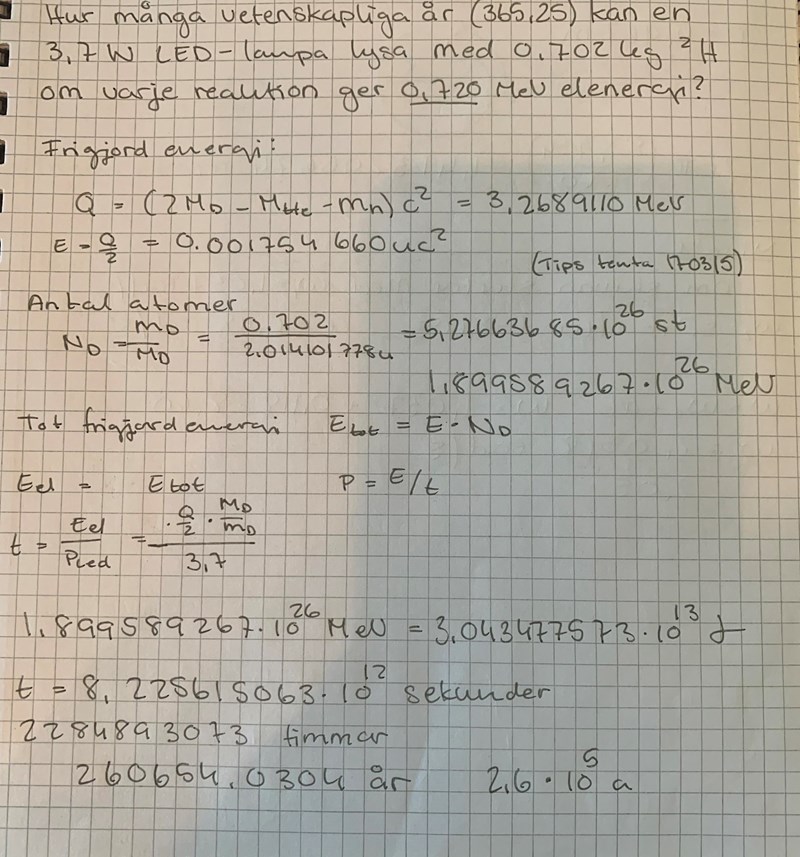 Hur många vetenskapliga år (365,25) kan en
3,7 W LED-lampa lysa med 0,702 kg ²H
om varje reaktion ger 0,720 MeV elenergi?
Frigjord energi:
Q = (2M_D - M_He - m_n) c² = 3,2689110 MeV
E - Q/2 = 0.001754 660uc²
(Tips tenta 170315)
Antal atomer
N_D = m_D/M_D = 0,702/2.014101778u = 5,276636 85·10²⁶ st
1,899589267·10²⁶ MeV
Tot frigjord energi E_tot = E·N_D
Eel = Etot P = E/t
t = Eel/Pled = ·Q/2·M_D/m_D/3,7
1,899589267·10²⁶ MeV = 3,043477573·10¹³ J
t = 8,225615063·10¹² sekunder
2284893073 timmar
260654,0304 år 2,6·10⁵ a